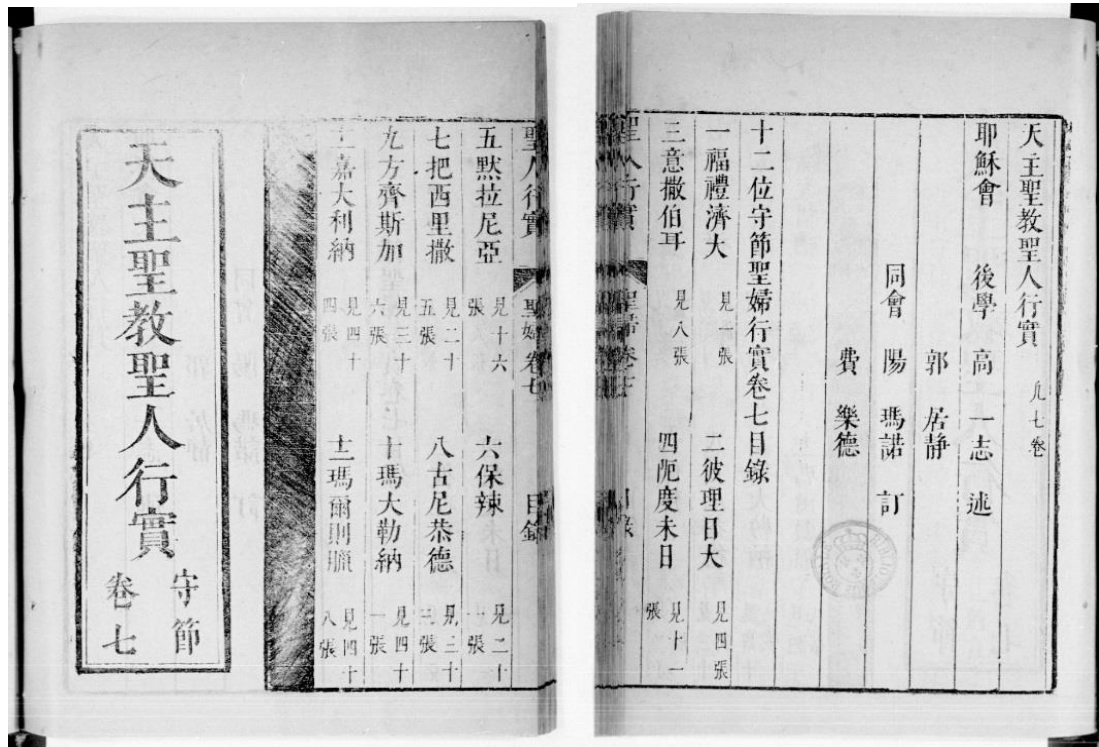 天主聖教聖人行實 凡七卷
耶穌會 後學 高一志 述
郭居静
同會 陽瑪諾 訂
費樂德
十二位守節聖婦行實卷七目錄
一福禮濟大 見一張 二彼理日大 見四張
三意撒伯耳 見八張 四阨度未日 見十一張
聖人行實 聖婦卷七 目錄
聖人行實 聖婦卷七 目錄
五默拉尼亞 見十六張 六保辣 見二十張
七把西里撒 見二十五張 八古尼恭德 見三十張
九方齊斯加 見三十六張 十瑪大勒納 見四十一張
十一嘉大利納 見四十四張 十二瑪爾則臘 見四十八張
天主聖教聖人行實
守節
卷七